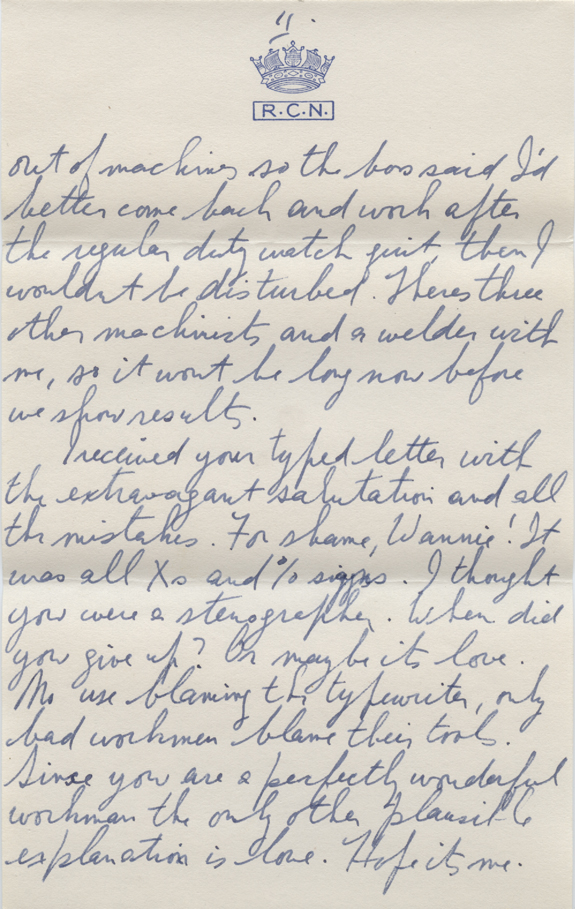 11.
R.C.N.
out of machines so the boss said I'd
better come back and work after
the regular duty watch quit, then I
wouldn't be disturbed. Theres three
other machinists and a welder with
me, so it wont be long now before
we show results.
I received your typed letter with
the extravagant salutation and all
the mistakes. For shame, Wannie! It
was all Xs and % signs. I thought
you were a stenographer. When did
you give up? Or maybe its love.
No use blaming the typewriter, only
bad workmen blame their tools.
Since you are a perfectly wonderful
workman the only other plausible
explanation is love. Hope its me.